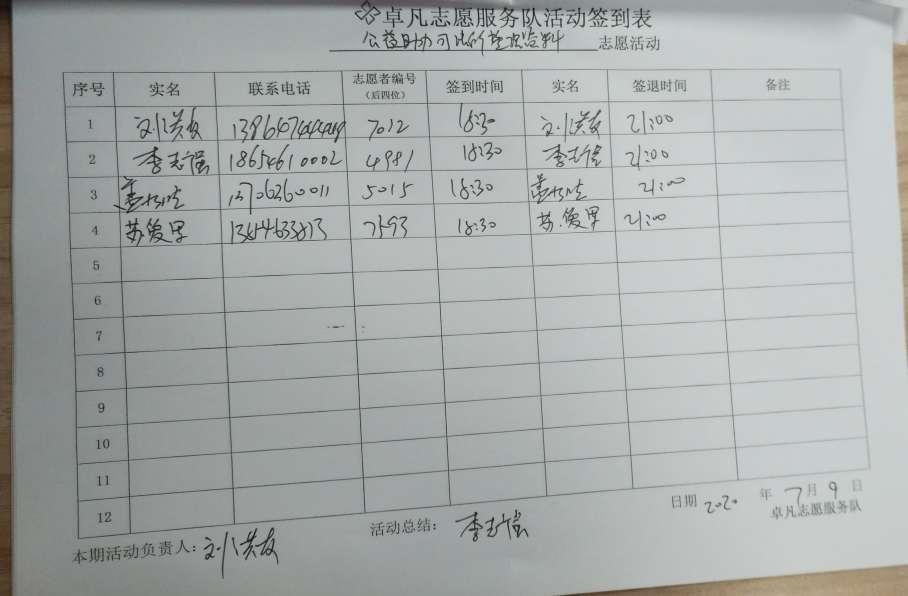 卓凡志愿服务队活动签到表
公益助力司法所整理资料 志愿活动
序号 实名 联系电话 志愿者编号（后四位） 签到时间 实名 签退时间 备注
1 刘洪友 7012 18:30 刘洪友 21:00
2 李志强 18654610002 4981 18:30 李志强 21:00
3 13706360011 5015 18:30 21:00
4 苏俊男 7593 18:30 苏俊男 21:00
5
6
7
8
9
10
11
12
日期 2020 年 7 月 9 日
本期活动负责人：刘洪友 活动总结： 李志强 卓凡志愿服务队